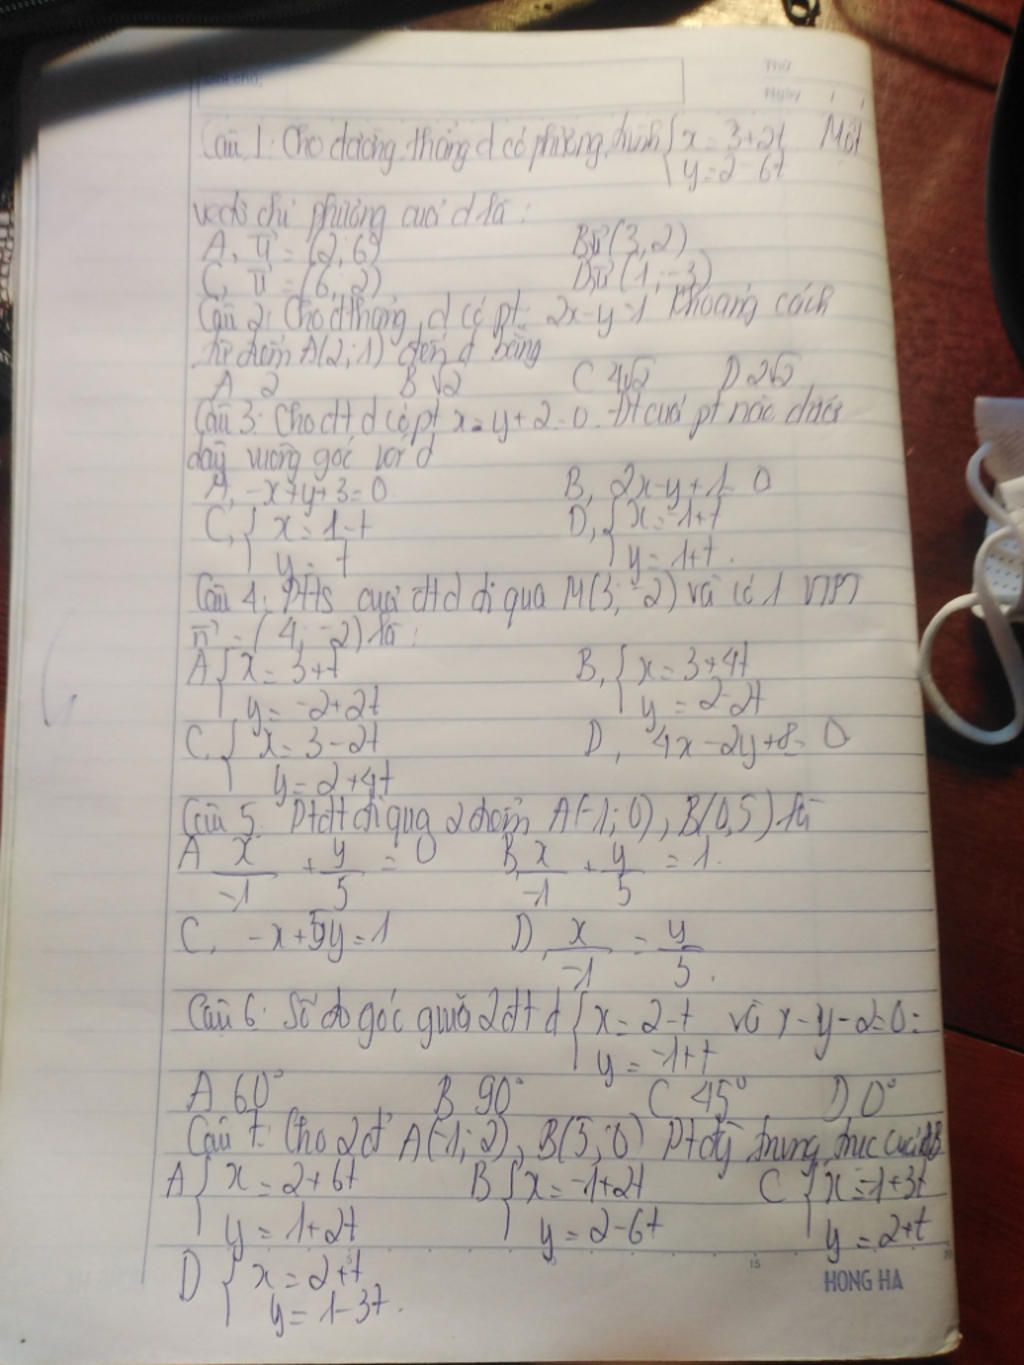 Thứ
Ngày
Câu 1: Cho đường thẳng d có phương trình { x = 3+2t Một
y = 2-6t
vectơ chỉ phương của d là :
A, u = (2; 6) B, u (3, 2)
C, u = (6; 2) D, u (1; -3)
Câu 2: Cho đ thẳng d có pt: 2x-y=1 khoảng cách
từ điểm A(2; 1) đến d bằng
A 2 B √2 C 4√2 D 2√2
Câu 3: Cho đt d có pt x-y+2=0. Đt của pt nào dưới
đây vuông góc với d
A, -x+y+3=0 B, 2x-y+1=0
C, { x = 1-t D, { x = -1+t
y = t y = 1+t.
Câu 4: Ptts của đt d đi qua M(3; -2) và có 1 VTPT
n = (4; -2) là:
A { x = 3+t B, { x = 3+4t
y = -2+2t y = 2-2t
C, { x = 3-2t D, 4x-2y+8=0
y = 2+4t
Câu 5. Ptđt đi qua 2 điểm A(-1; 0), B(0,5) là
A x/-1 + y/5 = 0 B, x/-1 + y/5 = 1.
C, -x+5y=1 D, x/-1 = y/5.
Câu 6: Số đo góc giữa 2 đt d { x = 2-t và x-y-2=0:
y = -1+t
A 60° B 90° C 45° D, 0°
Câu 7: Cho 2 đ' A(-1; 2), B(5; 0) Pt đg trung trực của AB
A { x = 2+6t B { x = -1+2t C { x = -1+3t
y = 1+2t y = 2-6t y = 2+t
D { x = 2+t
y = 1-3t.
15 20
HONG HA